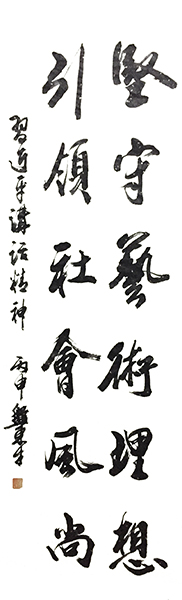 堅守藝術理想
引領社會風尚
習近平講話精神
丙申